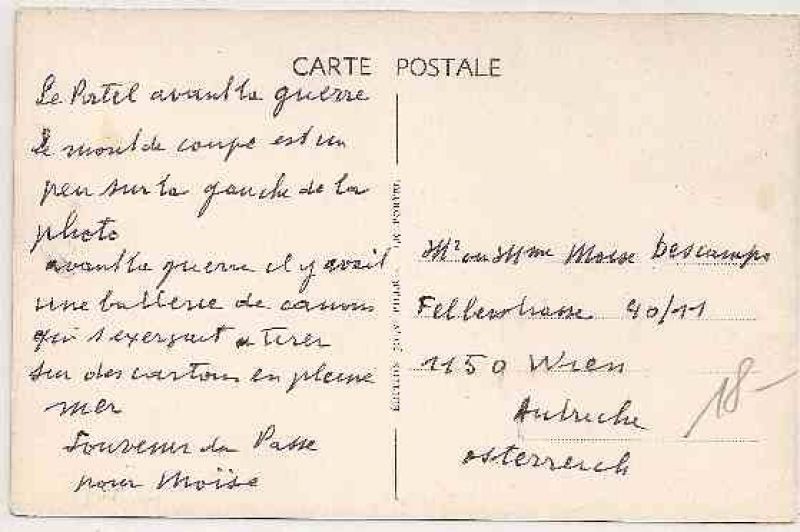 CARTE POSTALE
Le Portel avant la guerre
Le mont de coupe est un
peu sur la gauche de la
photo
avant la guerre il y avait
une batterie de canons
qui s'exerçait a tirer
sur des cartons en pleine
mer
Souvenir du Passe
pour Moïse
Mr ou Mme Moïse Descamps
Felberstrasse 90/11
1150 Wien
Autriche
osterreich
18-